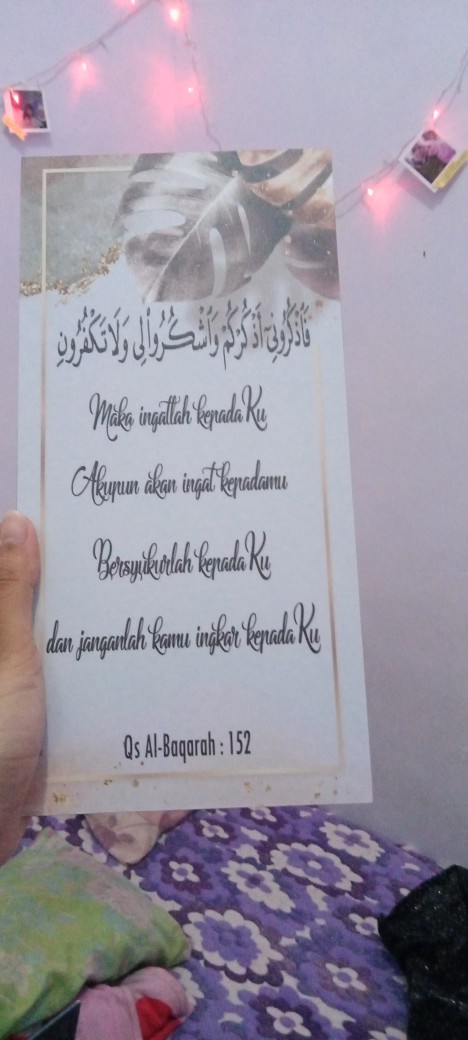 فَاذْكُرُونِيٓ أَذْكُرْكُمْ وَاشْكُرُوا۟ لِى وَلَا تَكْفُرُونِ
Maka ingatlah kepada Ku
Akupun akan ingat kepadamu
Bersyukurlah kepada Ku
dan janganlah kamu ingkar kepada Ku
Qs Al-Baqarah : 152